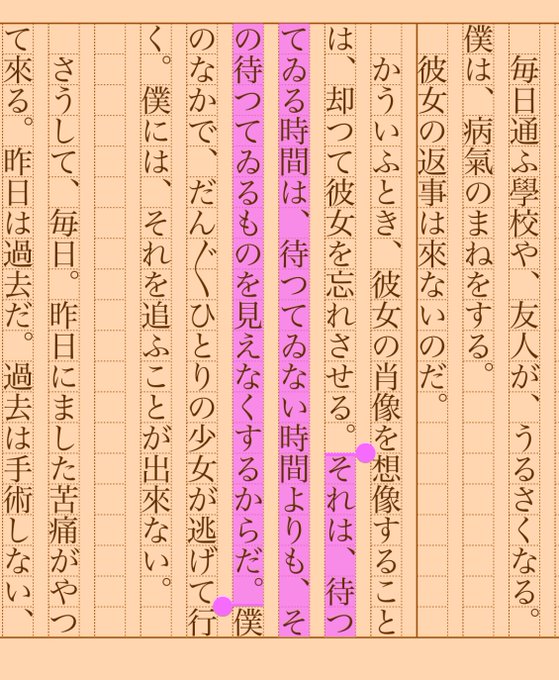 毎日通ふ學校や、友人が、うるさくなる。
僕は、病氣のまねをする。
彼女の返事は來ないのだ。
かういふとき、彼女の肖像を想像すること
は、却つて彼女を忘れさせる。それは、待つ
てゐる時間は、待つてゐない時間よりも、そ
の待つてゐるものを見えなくするからだ。僕
のなかで、だん〳〵ひとりの少女が逃げて行
く。僕には、それを追ふことが出來ない。
さうして、毎日。昨日にました苦痛がやつ
て來る。昨日は過去だ。過去は手術しない、